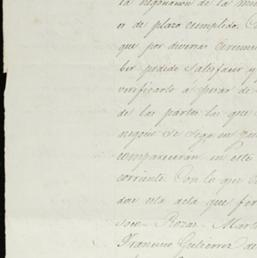 la negociacion de la
o de plazo cumplido.
que por diversas
ber podido satisfacer y
verificarlo a pesar de
de las partes la que
negocio se siga en
compareceran en este
corriente. Con lo que
dar esta acta que
Jose Rozas Mart
Francisco Gutierrez de